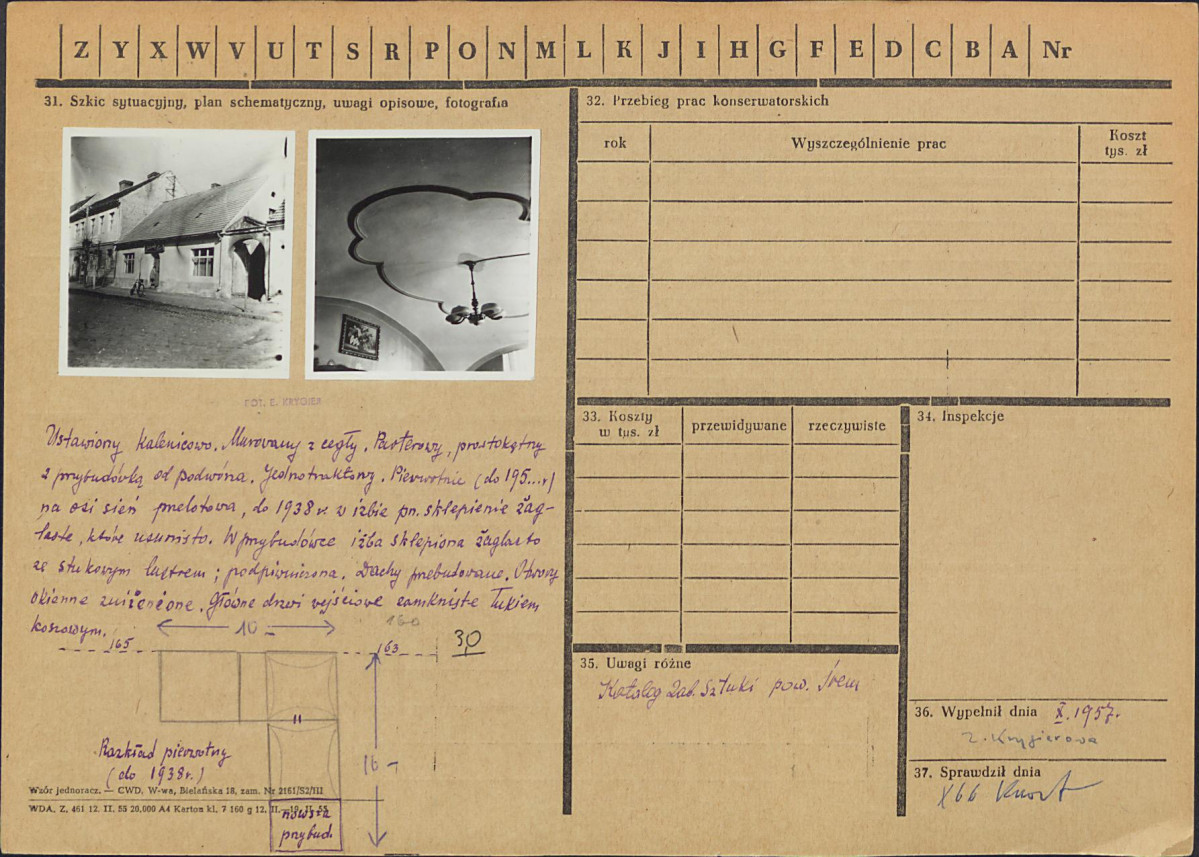 Z Y X W V U T S R P O N M L K J I H G F E D C B A Nr
31. Szkic sytuacyjny, plan schematyczny, uwagi opisowe, fotografia
FOT. E. KRYGIER
Ustawiony kalenicowo. Murowany z cegły. Parterowy, prostokątny
z przybudówką od podwórza. Jednotraktowy. Pierwotnie (do 195...r)
na osi sień przelotowa, do 1938 r. w izbie pn. sklepienie żag-
laste, które usunięto. W przybudówce izba sklepiona żaglasto
ze stukowym lustrem; podpiwniczona. Dachy przebudowane. Otwory
okienne zmienione. Główne drzwi wejściowe zamknięte łukiem
koszowym.
10
160
165
163
30
16
Rozkład pierwotny
(do 1938r.)
nowsza
przybud.
Wzór jednoraz. — CWD, W-wa, Bielańska 18, zam. Nr 2161/S2/III
WDA. Z. 461 12. II. 55 20.000 A4 Karton kl. 7 160 g 12. II.—19. II. 55
32. Przebieg prac konserwatorskich
rok
Wyszczególnienie prac
Koszt
tys. zł
33. Koszty
w tys. zł
przewidywane
rzeczywiste
34. Inspekcje
35. Uwagi różne
Katalog Zab. Sztuki pow. Śrem
36. Wypełnił dnia X.1957.
Z. Krygierowa
37. Sprawdził dnia
X 66